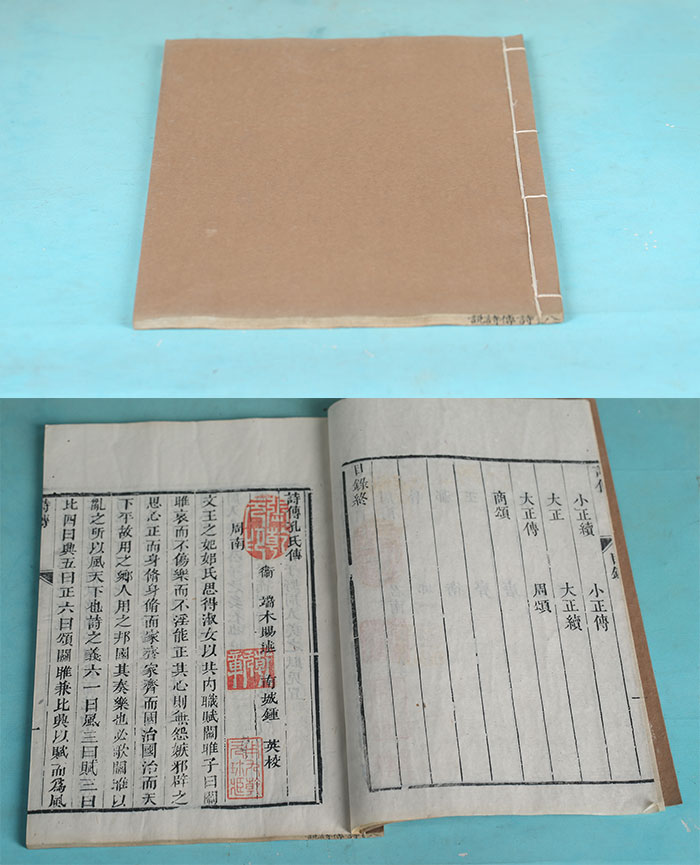 詩傳詩說
詩傳 目錄
小正續 小正傳
大正 大正續
大正傳 周頌
商頌
目錄終
詩傳孔氏傳
衞 端木賜述 南城鍾 英校
周南
文王之妃姒氏思得淑女以共內職賦關雎子曰關
雎哀而不傷樂而不淫能正其心則無怨嫉邪辟之
思心正而身脩身脩而家齊家齊而國治國治而天
下平故用之鄉人用之邦國其奏樂也必歌關雎以
亂之所以風天下也詩之義六一曰風二曰賦三曰
比四曰興五曰正六曰頌關雎兼比興以賦而爲風
詩傳 一